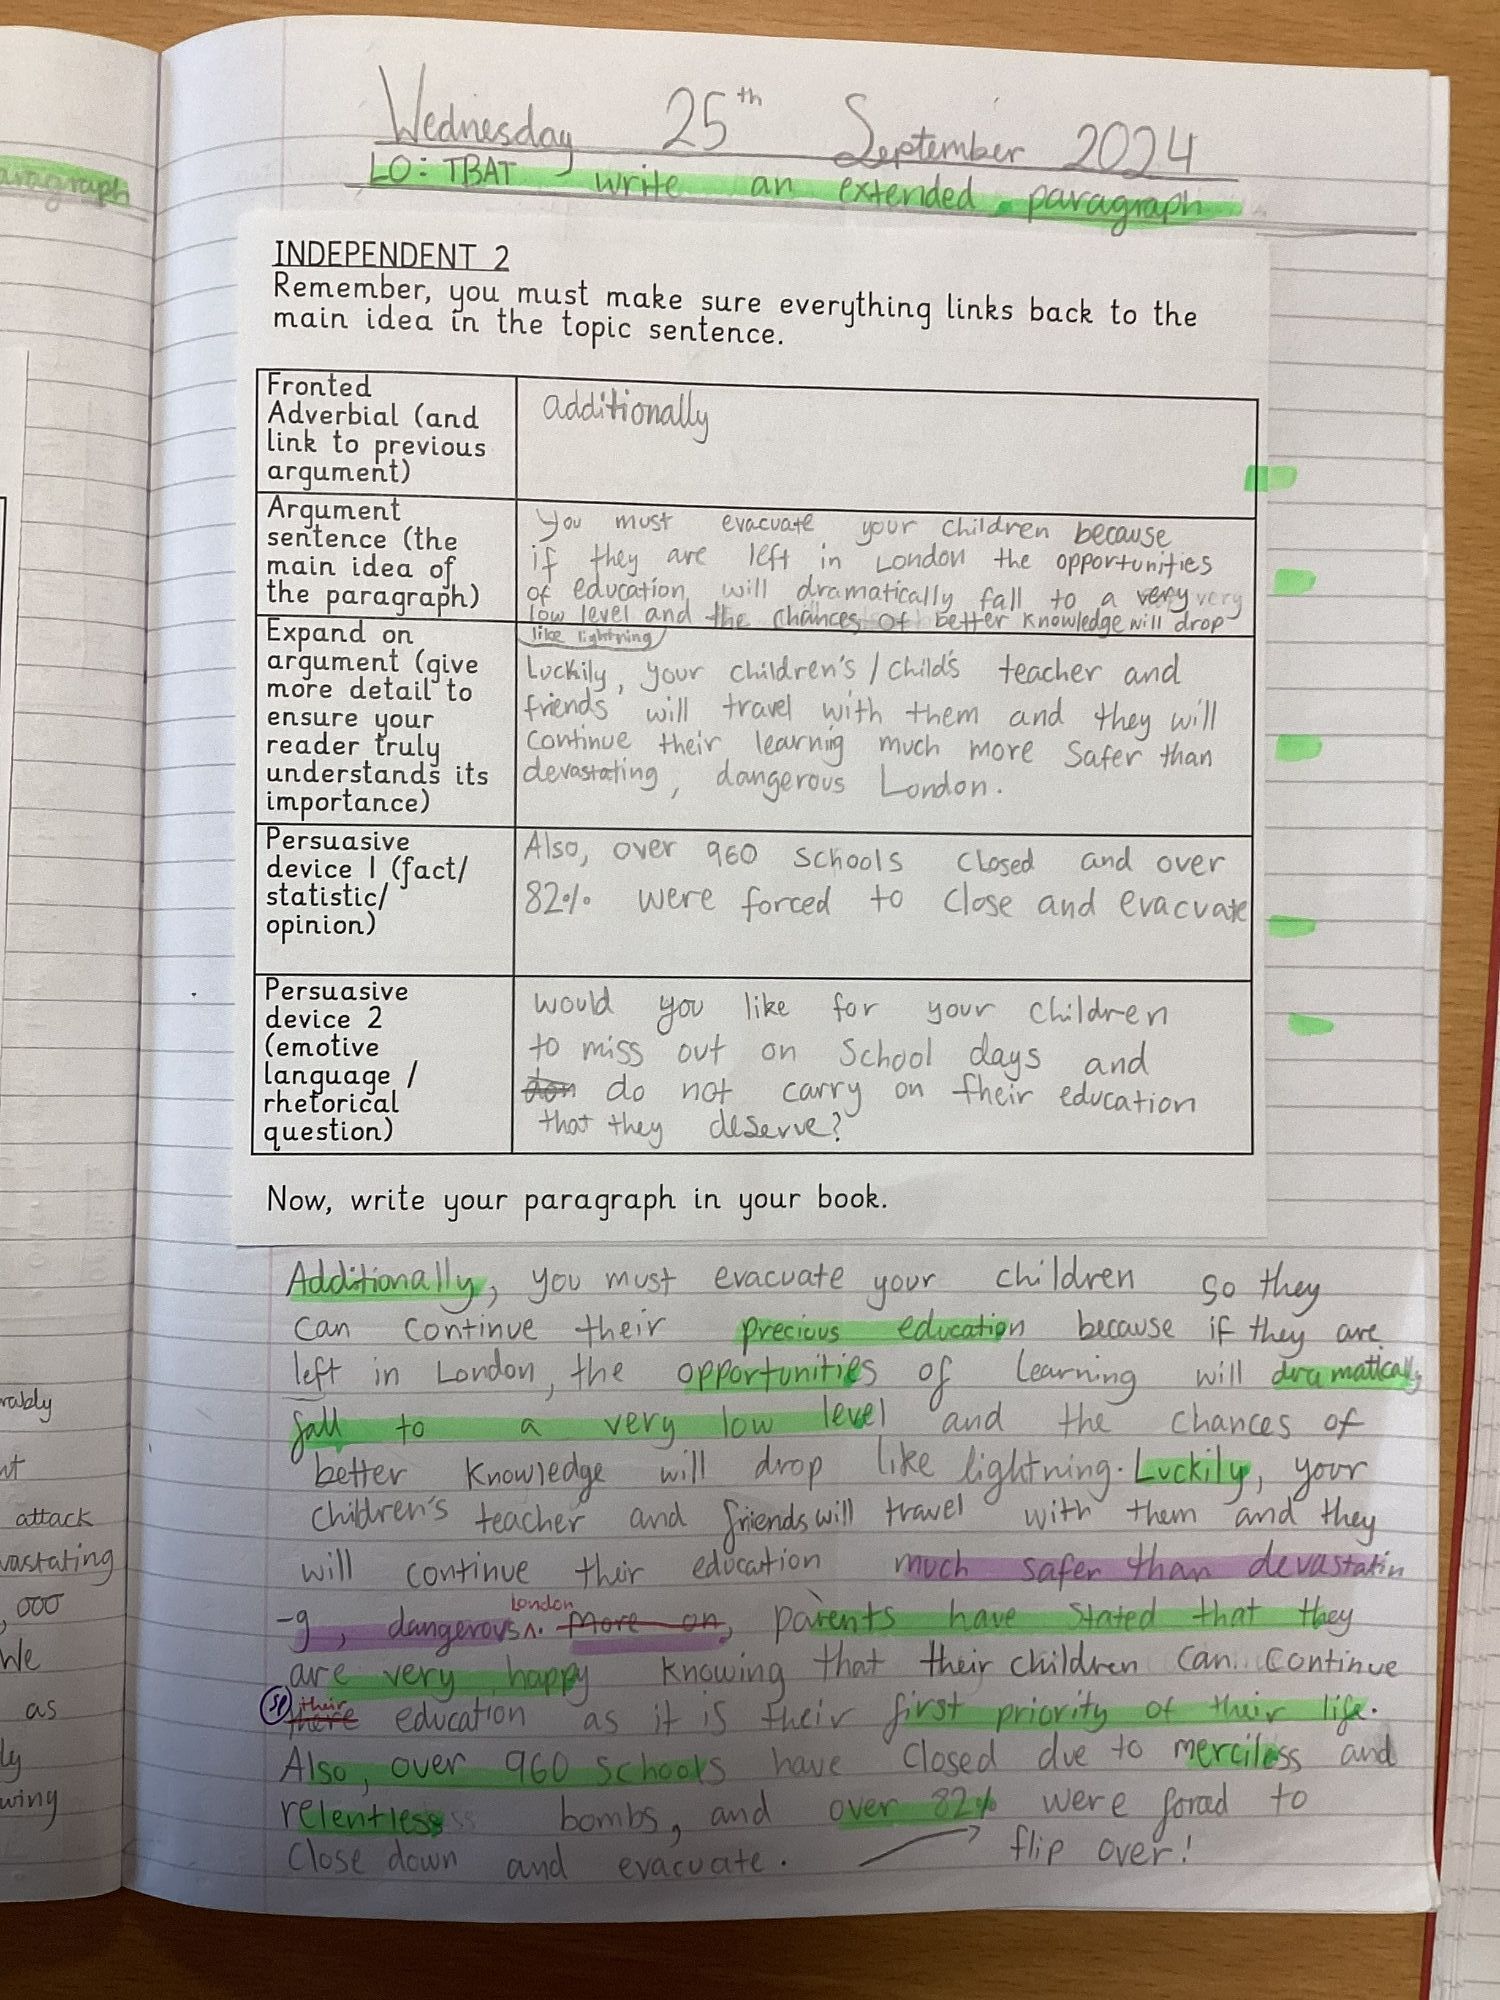 aragraph
rably
attack
vastating
000
We
as
ly
wing
Wednesday 25th September 2024
LO: TBAT write an extended paragraph
INDEPENDENT 2
Remember, you must make sure everything links back to the
main idea in the topic sentence.
Fronted
Adverbial (and
link to previous
argument)
additionally
Argument
sentence (the
main idea of
the paragraph)
You must evacuate your children because
if they are left in London the opportunities
of education will dramatically fall to a very very
low level and the chances of better knowledge will drop
like lightning
Expand on
argument (give
more detail to
ensure your
reader truly
understands its
importance)
Luckily, your children's / child's teacher and
friends will travel with them and they will
continue their learnig much more safer than
devastating, dangerous London.
Persuasive
device 1 (fact/
statistic/
opinion)
Also, over 960 schools closed and over
82% were forced to close and evacuate
Persuasive
device 2
(emotive
language /
rhetorical
question)
would you like for your children
to miss out on school days and
don do not carry on their education
that they deserve?
Now, write your paragraph in your book.
Additionally, you must evacuate your children so they
can continue their precious education because if they are
left in London, the opportunities of learning will dramatically
fall to a very low level and the chances of
better knowledge will drop like lightning. Luckily, your
children's teacher and friends will travel with them and they
will continue their education much safer than devastatin
-g, dangerous London. more on, parents have stated that they
are very happy knowing that their children can continue
sp there their education as it is their first priority of their life.
Also, over 960 schools have closed due to merciless and
relentless bombs, and over 82% were forced to
close down and evacuate. flip over!